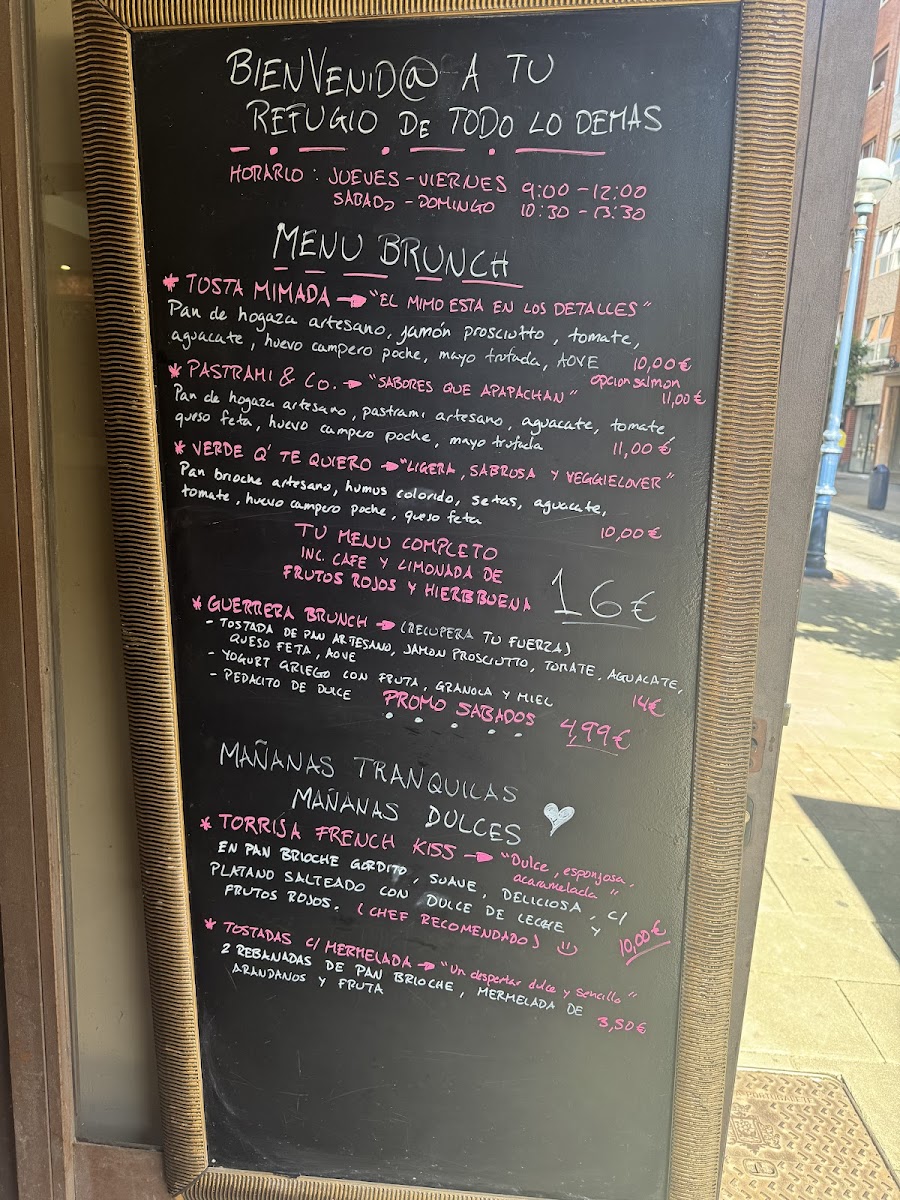 BIENVENID@ A TU
REFUGIO DE TODO LO DEMAS
HORARIO : JUEVES - VIERNES 9:00 - 12:00
SABADO - DOMINGO 10:30 - 13:30
MENU BRUNCH
* TOSTA MIMADA → "EL MIMO ESTA EN LOS DETALLES"
Pan de hogaza artesano, jamón prosciutto, tomate,
aguacate, huevo campero poche, mayo trufada, AOVE 10,00€
opcion salmon
11,00€
* PASTRAMI & Co. → "SABORES QUE APAPACHAN"
Pan de hogaza artesano, pastrami artesano, aguacate, tomate
queso feta, huevo campero poche, mayo trufada 11,00€
* VERDE Q' TE QUIERO → "LIGERA, SABROSA Y VEGGIELOVER"
Pan brioche artesano, humus colorido, setas, aguacate,
tomate, huevo campero poche, queso feta
10,00€
TU MENU COMPLETO
INC. CAFE Y LIMONADA DE
FRUTOS ROJOS Y HIERBBUENA
16€
* GUERRERA BRUNCH → (RECUPERA TU FUERZA)
- TOSTADA DE PAN ARTESANO, JAMON PROSCIUTTO, TOMATE, AGUACATE,
QUESO FETA, AOVE
- YOGURT GRIEGO CON FRUTA, GRANOLA Y MIEL
- PEDACITO DE DULCE
14€
PROMO SABADOS 4,99€
MAÑANAS TRANQUILAS
MAÑANAS DULCES
* TORRIJA FRENCH KISS → "Dulce, esponjosa,
acaramelada"
EN PAN BRIOCHE GORDITO, SUAVE, DELICIOSA, C/
PLATANO SALTEADO CON DULCE DE LECHE Y
FRUTOS ROJOS. (CHEF RECOMENDADO)
10,00€
* TOSTADAS C/ MERMELADA → "Un despertar dulce y sencillo"
2 REBANADAS DE PAN BRIOCHE, MERMELADA DE
ARANDANOS Y FRUTA
3,50€